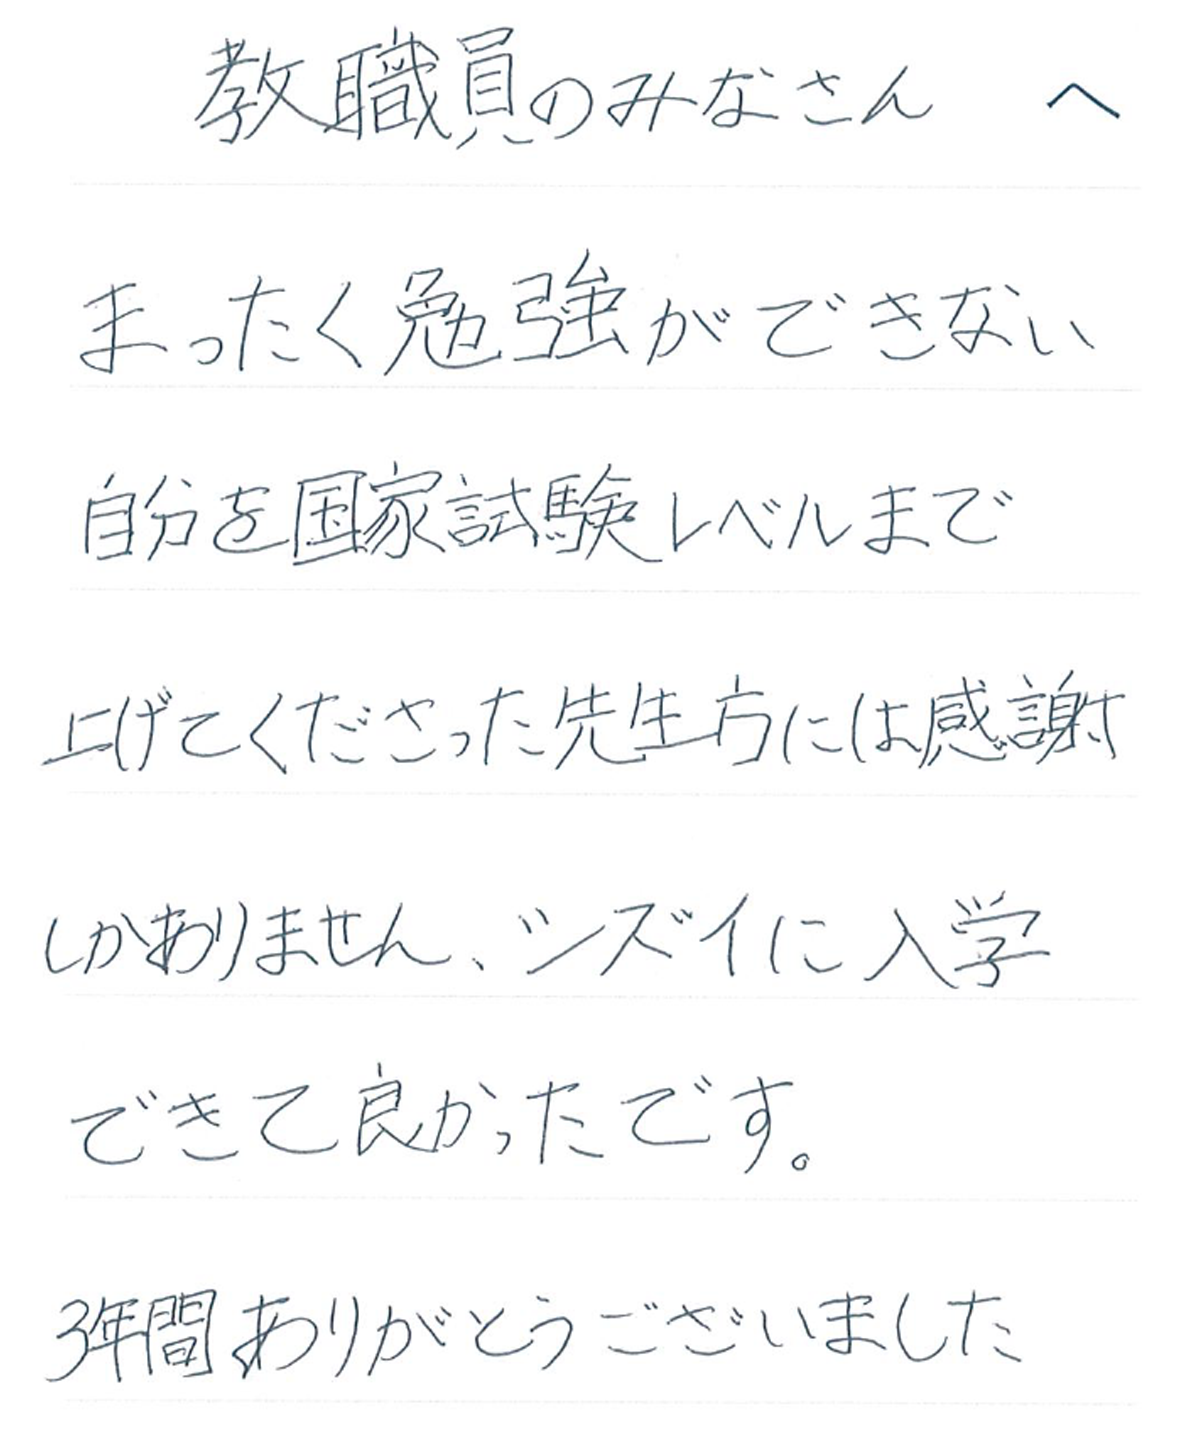 教職員のみなさん へ
まったく勉強ができない
自分を国家試験レベルまで
上げてくださった先生方には感謝
しかありません、シズイに入学
できて良かったです。
3年間ありがとうございました